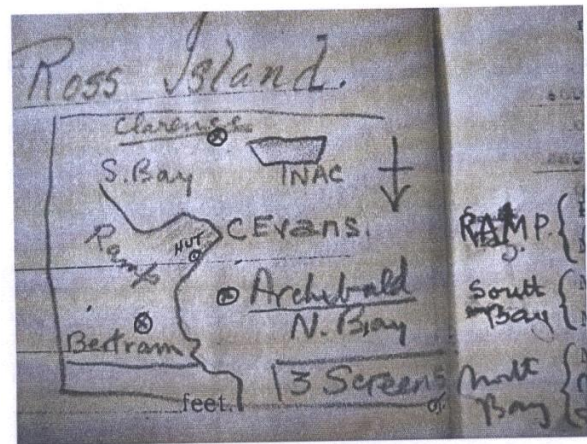 Ross Island.
Clarence
S. Bay
INAC
Ramp
HUT
C Evans.
Archibald
N. Bay
Bertram
3 Screens
feet.
of.
RAMP.
South
Bay
North
Bay